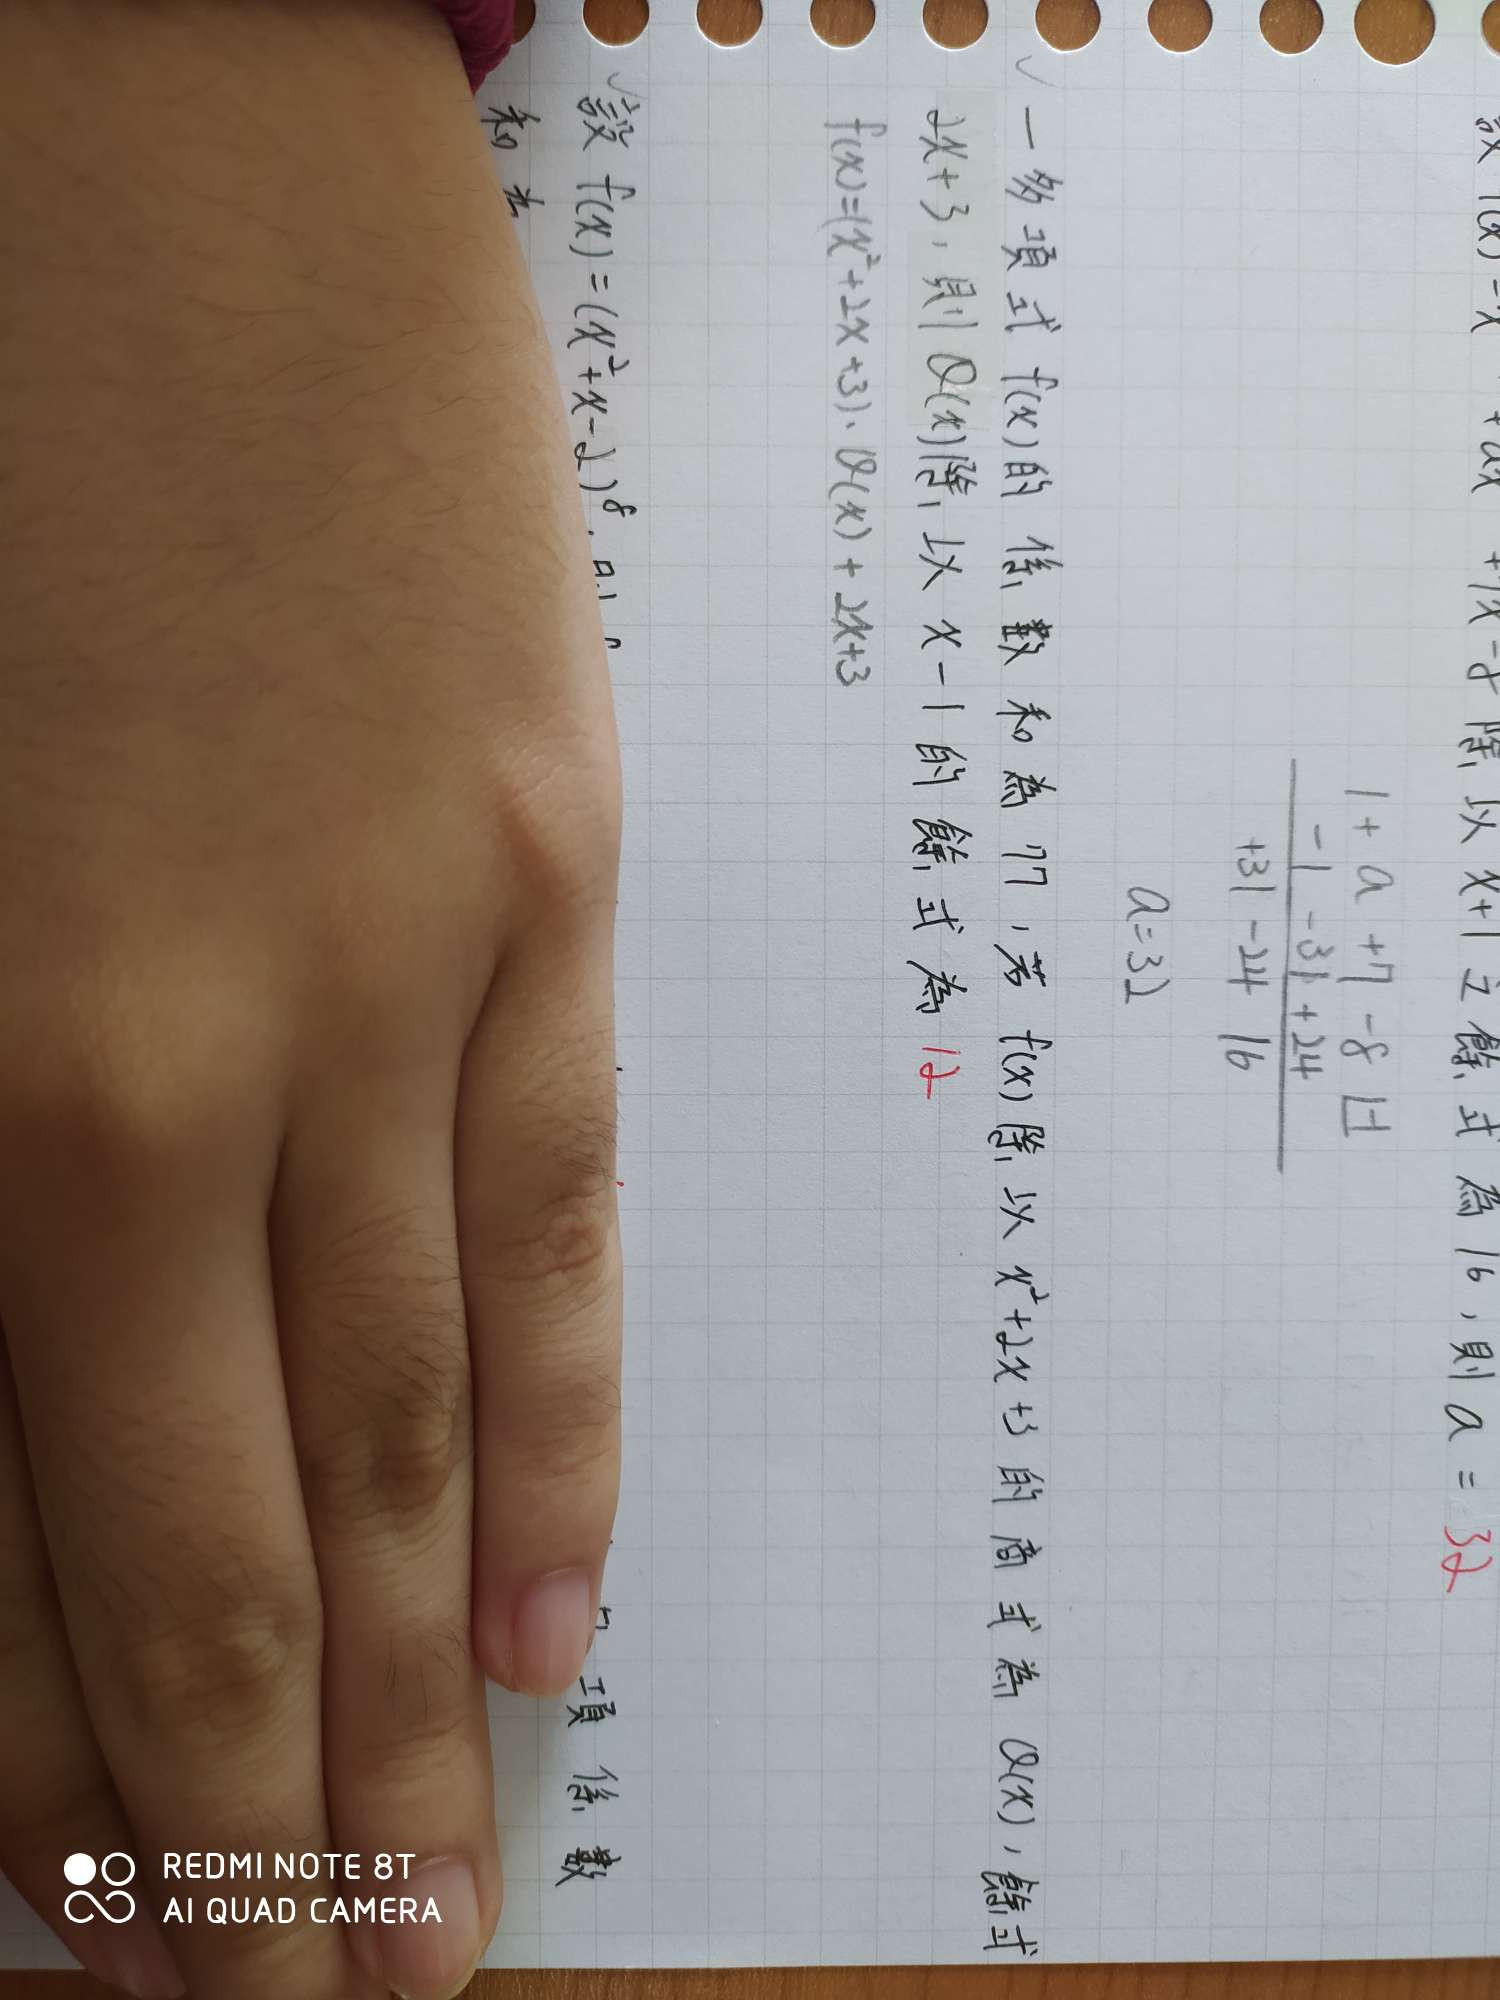 設 f(x)=x + ax + 7x - 8 除以 x+1 之餘式為 16,則 a = 32
1 + a + 7 - 8
-1 -31 +24
+31 -24 16
a=32
一多項式 f(x) 的係數和為 77,若 f(x) 除以 x²+2x+3 的商式為 Q(x),餘式
2x+3,則 Q(x) 除以 x-1 的餘式為 12
f(x)=(x²+2x+3)·Q(x)+2x+3
設 f(x)=(x²+x-2)⁸,則 項係數
和為
REDMI NOTE 8T
AI QUAD CAMERA